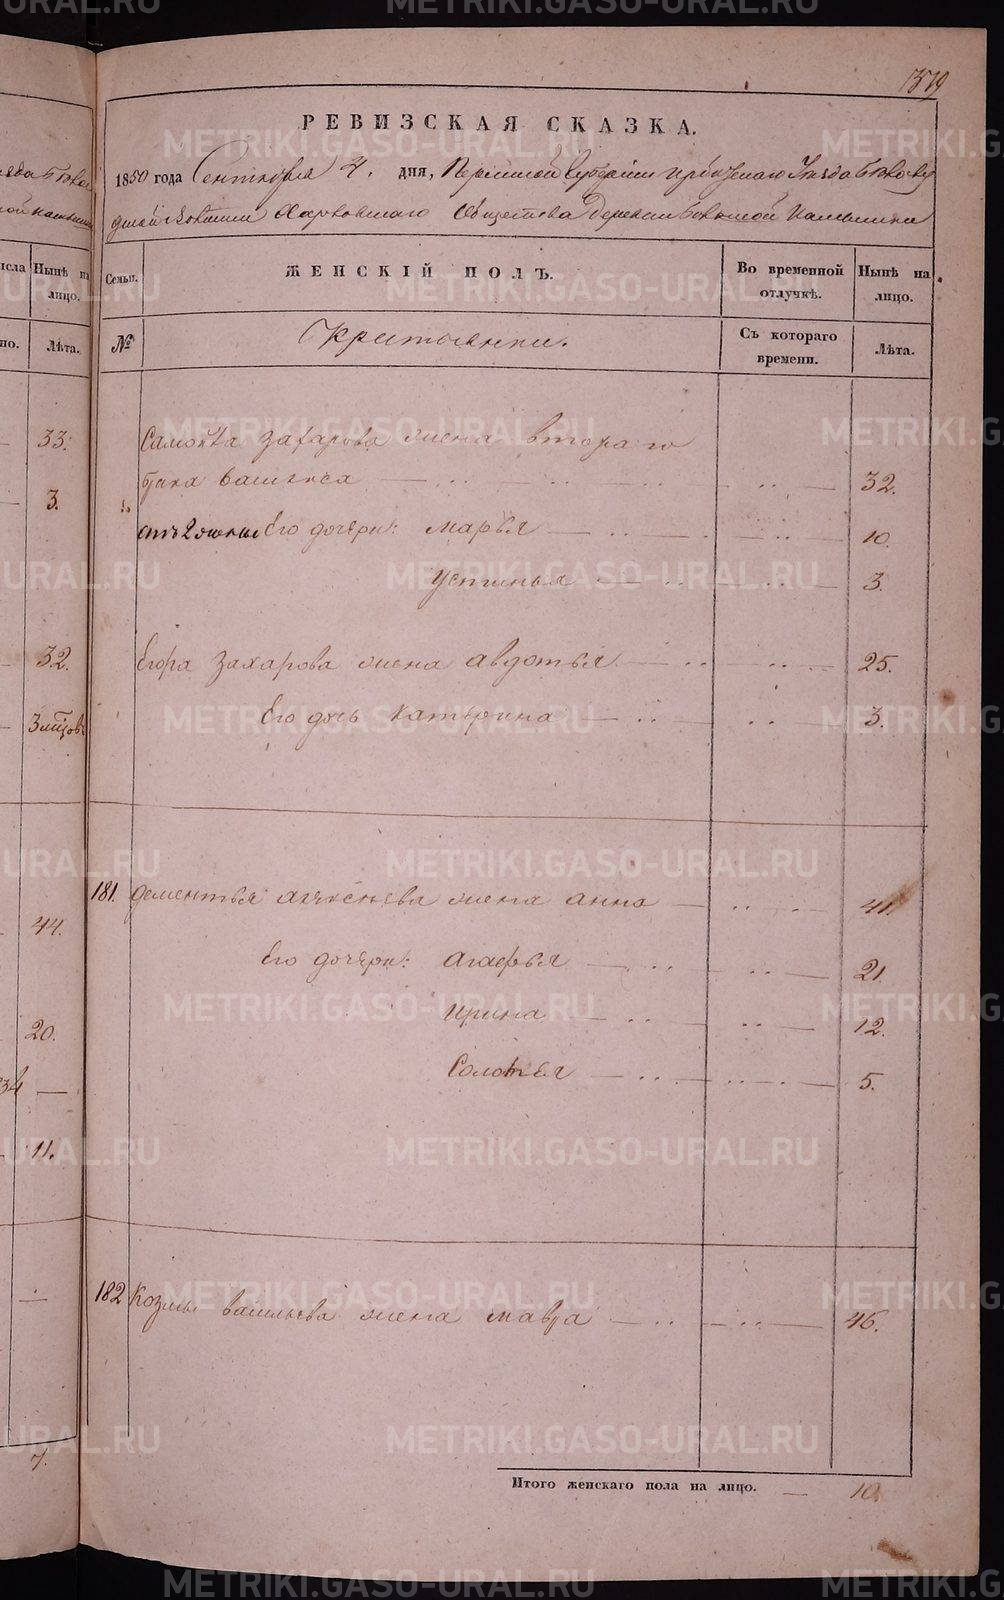 1379
РЕВИЗСКАЯ СКАЗКА.
1850 года Сентября 4. дня, Пермской Губернии Ирбитскаго Уезда Бѣлослу
дской волости Харловскаго Общества Деревни Большой Камышенки
Семьи. ЖЕНСКІЙ ПОЛЪ. Во временной отлучкѣ. Нынѣ на лицо.
№ Крестьянки. Съ котораго времени. Лѣта.
Самойла Захарова жена втораго
брака Василиса 32.
отъ 2 жены Его дочери: Марья 10.
Устинья 3.
Егора Захарова жена Авдотья 25.
Его дочь Катерина 3.
181. Дементья Алексѣева жена Анна 41.
Его дочери: Агафья 21
Ирина 12.
Соломея 5.
182 Козмы Васильева жена Мавра 46.
Итого женскаго пола на лицо. 10.
Нынѣ на лицо.
Лѣта.
33.
3.
32.
44.
20.
11.
7.
METRIKI.GASO-URAL.RU